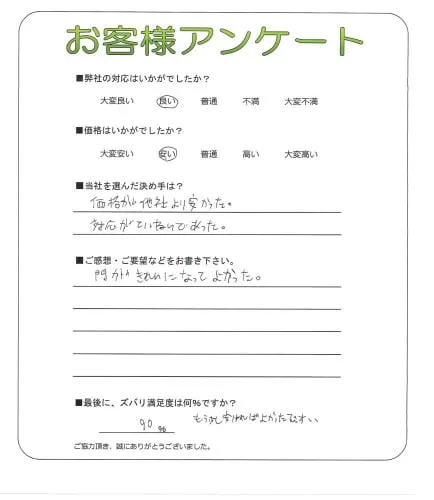 お客様アンケート
■弊社の対応はいかがでしたか？
大変良い 良い 普通 不満 大変不満
■価格はいかがでしたか？
大変安い 安い 普通 高い 大変高い
■当社を選んだ決め手は？
価格が他社より安かった。
対応がていねいであった。
■ご感想・ご要望などをお書き下さい。
門がきれいになってよかった。
■最後に、ズバリ満足度は何％ですか？
90 ％ もう少し安ければよかったです
ご協力頂き、誠にありがとうございました。